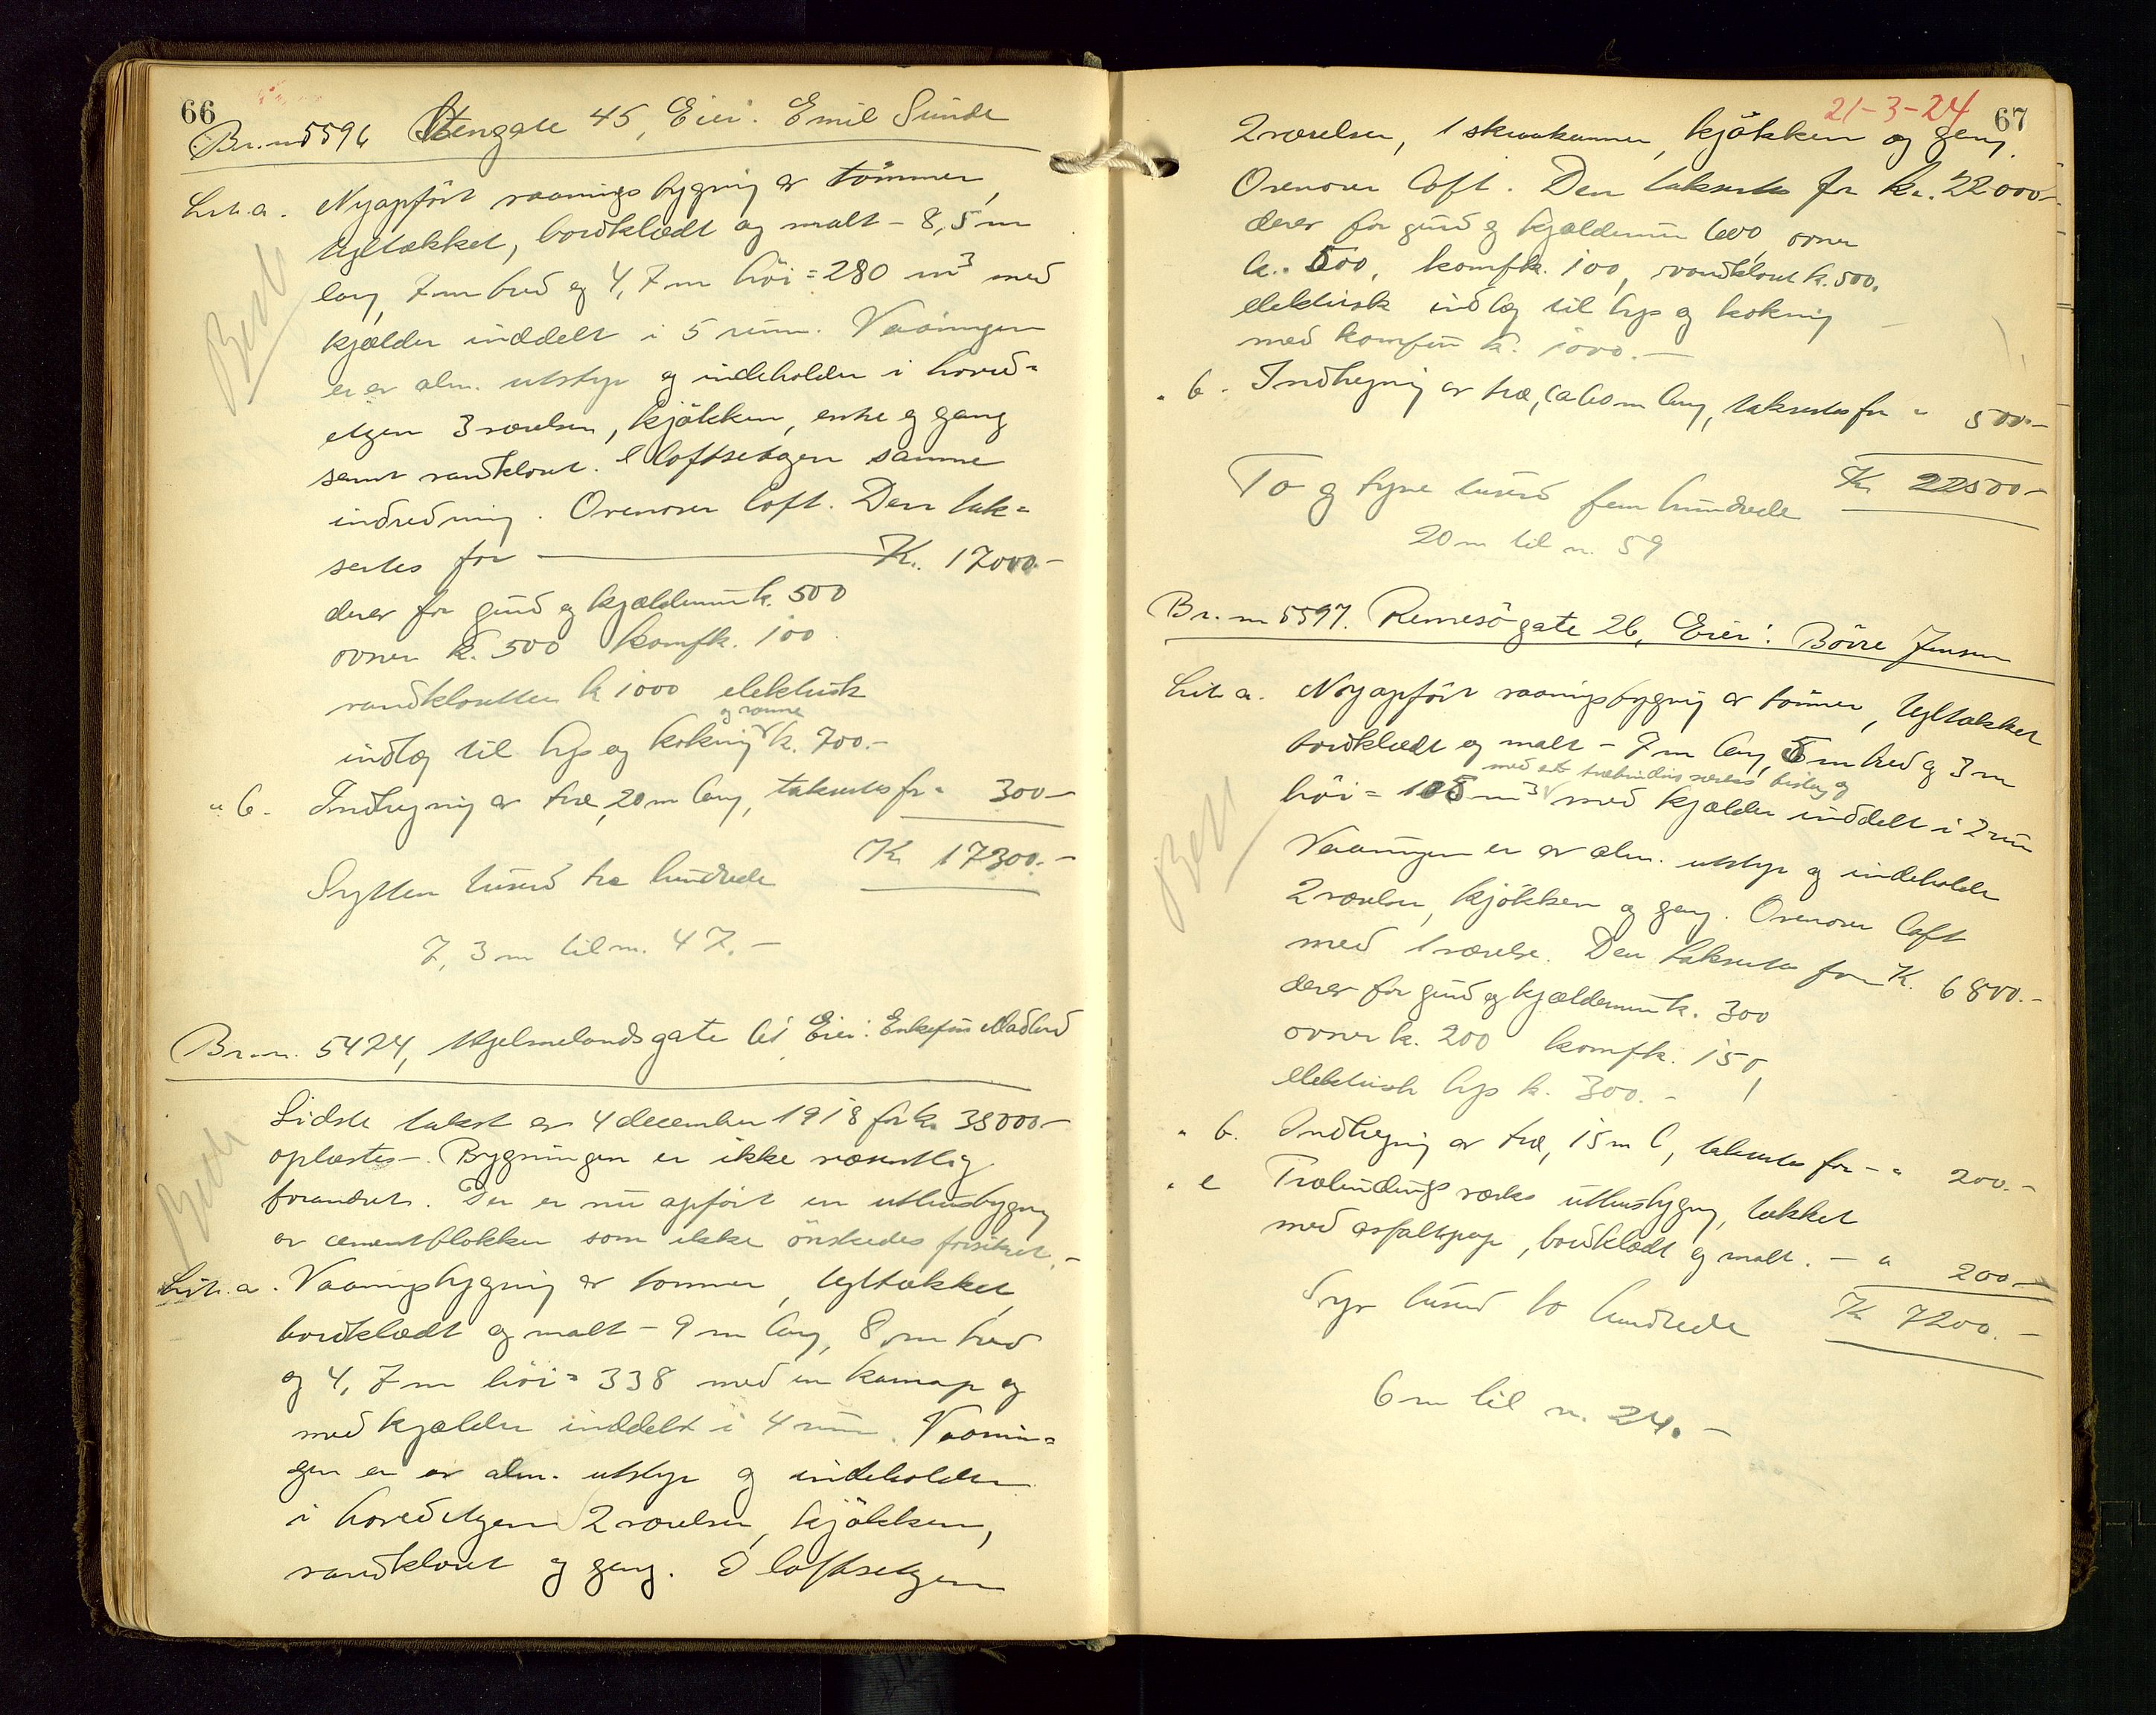 66
Br.nr 5596 Stengate 45, Eier: Emil Sunde
Litr. a. Nyopfört vaaningsbygning av tömmer,
tegltækket, bordklædt og malt - 8,5 m
lang, 7 m bred og 4,7 m höi = 280 m³ med
kjælder inddelt i 5 rum. Vaaningen
er av alm. utstyr og indeholder i hoved-
etgen 3 værelser, kjökken, entre og gang
samt vandkloset. I loftsetagen samme
indredning. Ovenover loft. Den tak-
sertes for Kr. 17000.-
derav for grund og kjældermur k. 500
ovner k. 500 komfk. 100
vandklosetter k 1000 elektrisk
og varme
indlæg til lys og kokning k. 700.-
" b. Indhegning av træ, 20 m lang, taksertes for " 300-
Kr 17300.-
Sytten tusend tre hundrede
7,3 m til nr. 47.-
Bedt
Br.nr. 5424, Hjelmelandsgate 61 Eier: Enkefru Madland
Sidste takst er 4 december 1918 for kr. 38000-
oplæstes-. Bygningen er ikke væsentlig
forandret. Der er nu opfört en uthusbygning
av cementblokker som ikke önskedes forsikret.-
Litr. a. Vaaningsbygning av tømmer, tegltækket,
bordklædt og malt - 9 m lang, 8 m bred
og 4,7 m höi = 338 med en kamap og
med kjælder inddelt i 4 rum. Vaanin-
gen er av alm. utstyr og indeholder
i hovedetgen 2 værelser, kjökken,
vandkloset og gang. I loftsetgen
Bedt
21-3-24 67
2 værelser, 1 skraakammer, kjökken og gang.
Ovenover loft. Den taksertes for kr. 22000-
derav for grund og kjældermur 600, ovner
k. 500, komfk. 100, vandkloset k. 500.
elektrisk indlæg til lys og kokning
med komfur k. 1000.-
" b. Indhegning av træ, ca 60 m lang, taksertes for " 500.-
Kr 22500-
To og tyve tusend fem hundrede
20 m til nr. 59
Br.nr 5597. Rennesögate 26, Eier: Börre Jensen
Litr. a. Nyopfört vaaningsbygning av tömmer, tegltækket
bordklædt og malt - 7 m lang, 5 m bred og 3 m
med et træbindingsverks bislag og
höi = 105 m³ med kjælder inddelt i 2 rum
Vaaningen er av alm. utstyr og indeholder
2 værelser, kjökken og gang. Ovenover loft
med 1 værelse. Den taksertes for K. 6800.-
derav for grund og kjældermur k. 300
ovner k. 200 komfk. 150,
elektrisk lys k. 300.-
" b. Indhegning av træ, 15 m l, taksertes for - " 200.-
" c Træbindingsverks uthusbygning, tækket
med asfaltpap, bordklædt og malt. - " 200-
Kr 7200.-
Syv tusend to hundrede
6 m til nr. 24.-
Bedt